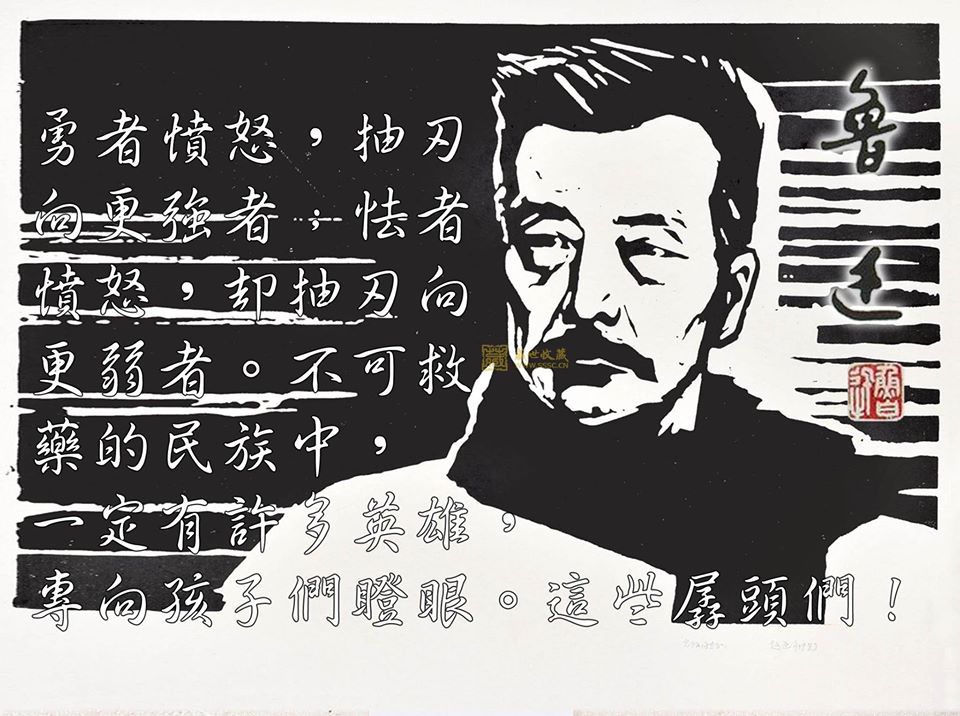 勇者憤怒，抽刃
向更強者；怯者
憤怒，却抽刃向
更弱者。不可救
藥的民族中，
一定有許多英雄，
專向孩子們瞪眼。這些孱頭們！
魯迅
盛世收藏
WWW.SSSC.CN